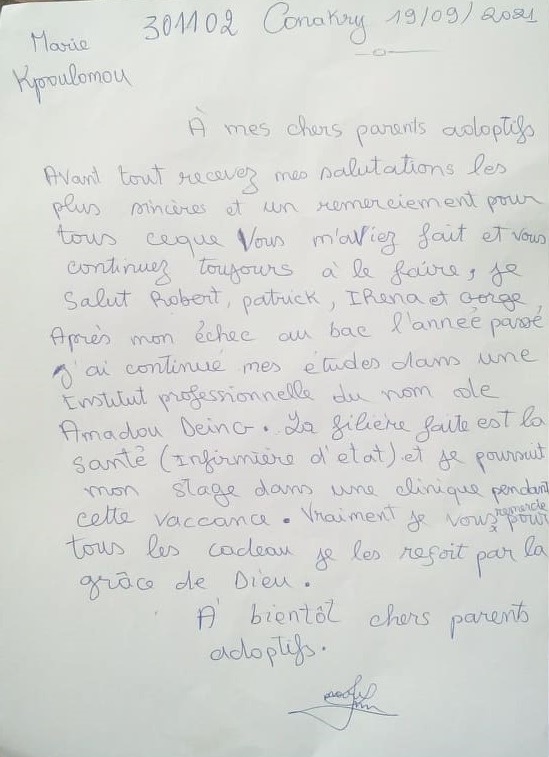 Marie 301102 Conakry 19/09/2021
Kpoulomou
À mes chers parents adoptifs
Avant tout recevez mes salutations les
plus sincères et un remerciement pour
tous ceque Vous m'aviez fait et vous
continuez toujours à le faire, je
Salut Robert, patrick, IRena et Gorge,
Après mon échec au bac l'année passé
J'ai continué mes études dans une
Institut professionnelle du nom de
Amadou Deing. La filière faite est la
santé (Infirmière d'état) et je poursuit
mon stage dans une clinique pendant
cette vaccance. Vraiment je vous remercie pour
tous les cadeau je les reçoit par la
grâce de Dieu.
À bientôt chers parents
adoptifs.